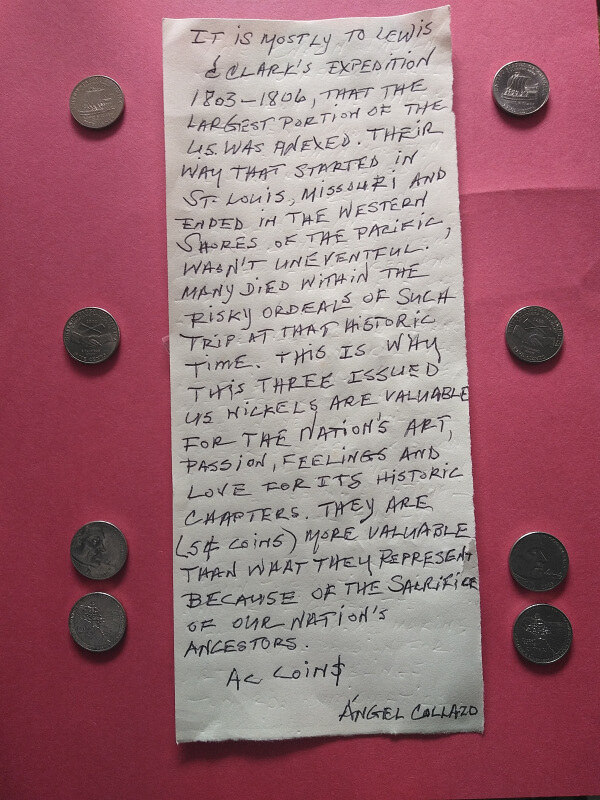 IT IS MOSTLY TO LEWIS
& CLARK'S EXPEDITION
1803-1806, THAT THE
LARGEST PORTION OF THE
U.S. WAS ANEXED. THEIR
WAY THAT STARTED IN
ST. LOUIS, MISSOURI AND
ENDED IN THE WESTERN
SHORES OF THE PACIFIC,
WASN'T UNEVENTFUL.
MANY DIED WITHIN THE
RISKY ORDEALS OF SUCH
TRIP AT THAT HISTORIC
TIME. THIS IS WHY
THIS THREE ISSUED
US NICKELS ARE VALUABLE
FOR THE NATION'S ART,
PASSION, FEELINGS AND
LOVE FOR ITS HISTORIC
CHAPTERS. THEY ARE
(5¢ COINS) MORE VALUABLE
THAN WHAT THEY REPRESENT
BECAUSE OF THE SACRIFICE
OF OUR NATION'S
ANCESTORS.
AC COIN$
ÁNGEL COLLAZO